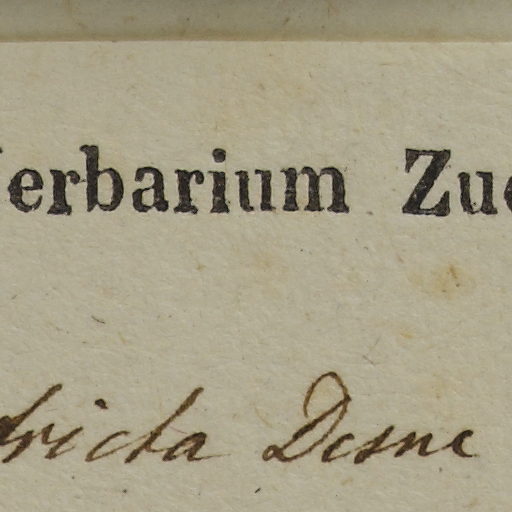 erbarium Zuc
tricta Desne